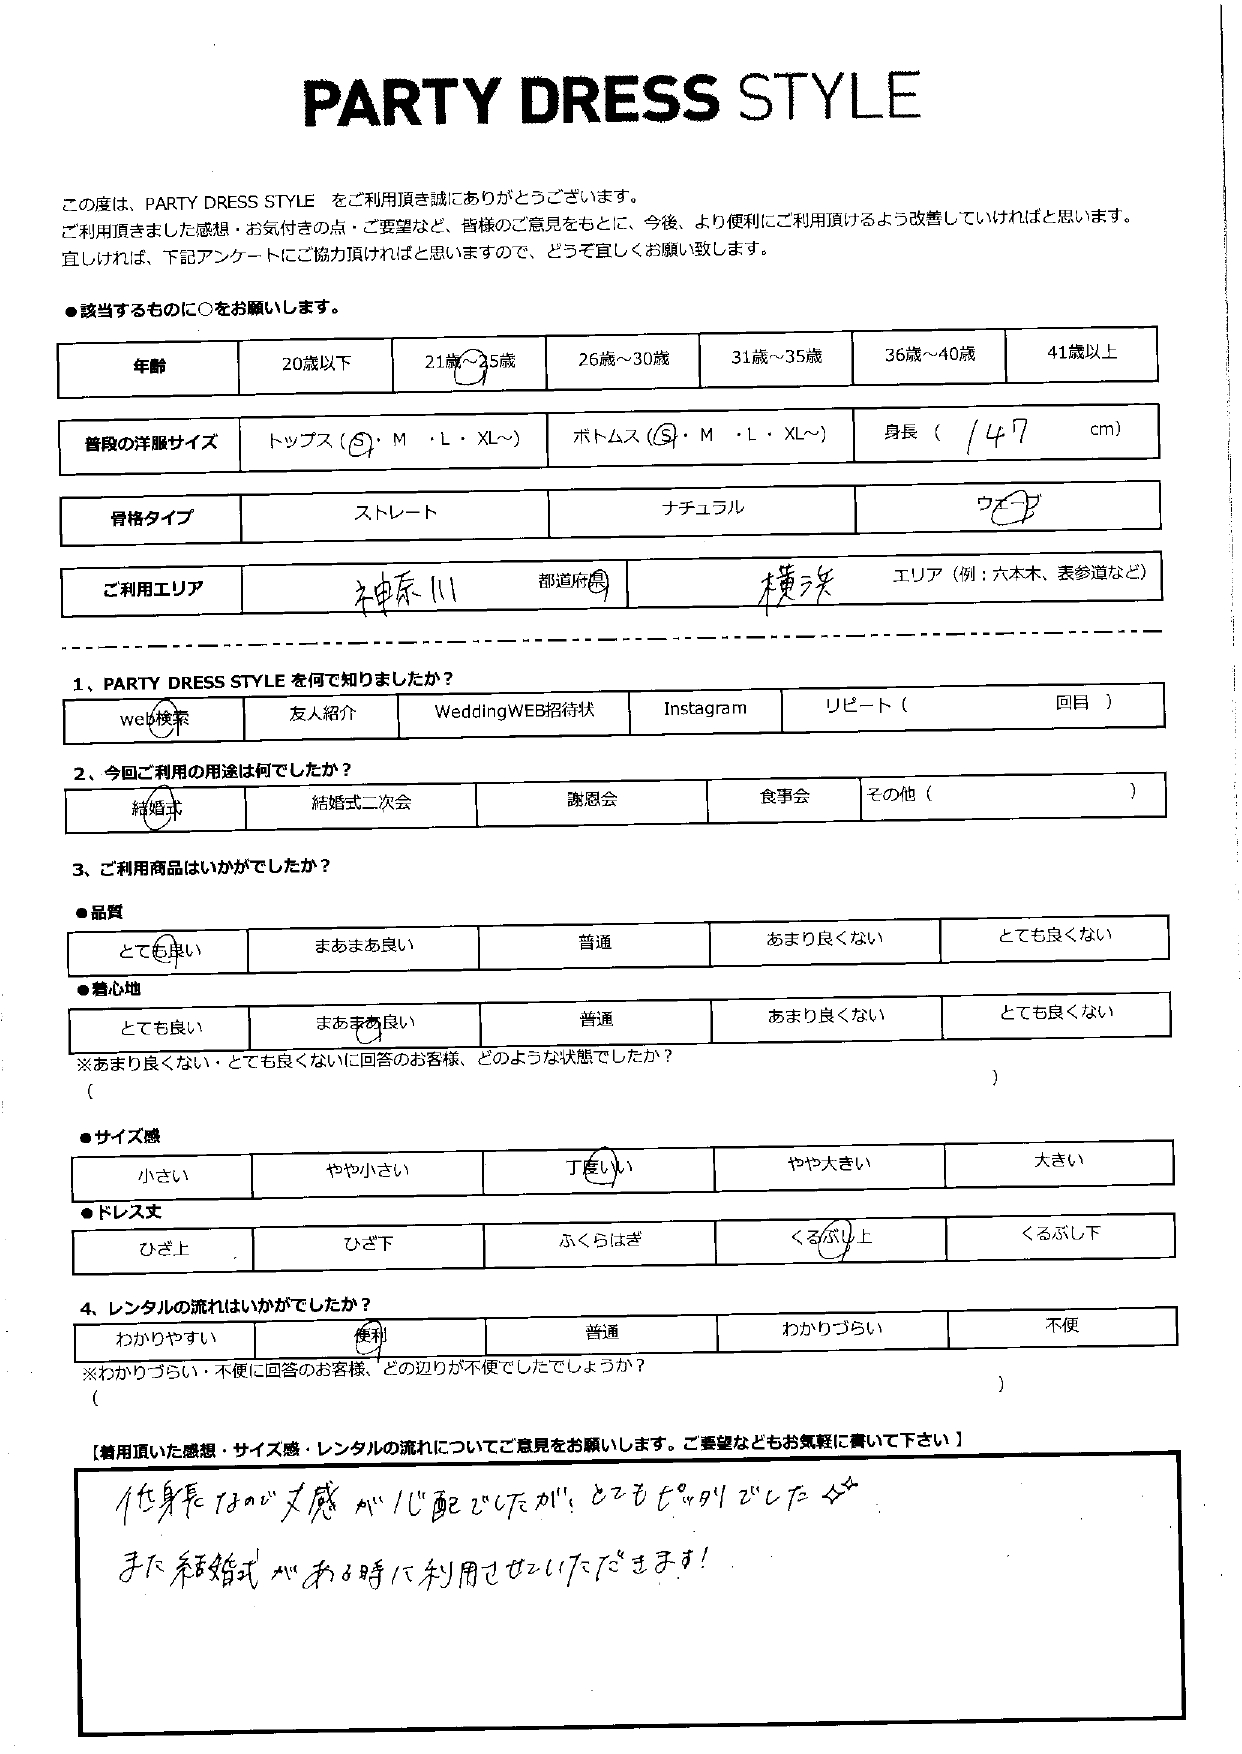 PARTY DRESS STYLE
この度は、PARTY DRESS STYLE をご利用頂き誠にありがとうございます。
ご利用頂きました感想・お気付きの点・ご要望など、皆様のご意見をもとに、今後、より便利にご利用頂けるよう改善していければと思います。
宜しければ、下記アンケートにご協力頂ければと思いますので、どうぞ宜しくお願い致します。
●該当するものに○をお願いします。
年齢 20歳以下 21歳～25歳 26歳～30歳 31歳～35歳 36歳～40歳 41歳以上
普段の洋服サイズ トップス（S・M ・L・XL～） ボトムス（S・M ・L・XL～） 身長（ 147 cm）
骨格タイプ ストレート ナチュラル ウェーブ
ご利用エリア 神奈川 都道府県 横浜 エリア（例：六本木、表参道など）
1、PARTY DRESS STYLE を何で知りましたか？
web検索 友人紹介 WeddingWEB招待状 Instagram リピート（ 回目 ）
2、今回ご利用の用途は何でしたか？
結婚式 結婚式二次会 謝恩会 食事会 その他（ ）
3、ご利用商品はいかがでしたか？
●品質
とても良い まあまあ良い 普通 あまり良くない とても良くない
●着心地
とても良い まあまあ良い 普通 あまり良くない とても良くない
※あまり良くない・とても良くないに回答のお客様、どのような状態でしたか？
（ ）
●サイズ感
小さい やや小さい 丁度いい やや大きい 大きい
●ドレス丈
ひざ上 ひざ下 ふくらはぎ くるぶし上 くるぶし下
4、レンタルの流れはいかがでしたか？
わかりやすい 便利 普通 わかりづらい 不便
※わかりづらい・不便に回答のお客様、どの辺りが不便でしたでしょうか？
（ ）
【着用頂いた感想・サイズ感・レンタルの流れについてご意見をお願いします。ご要望などもお気軽に書いて下さい 】
低身長なので丈感が心配でしたが、とてもピッタリでした✨
また結婚式がある時に利用させていただきます!